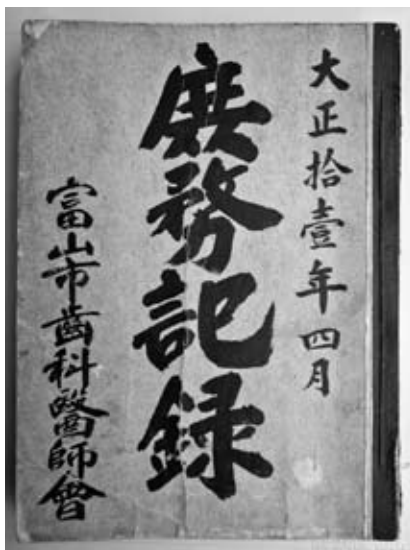 大正拾壹年四月
庶務記録
富山市齒科醫師會